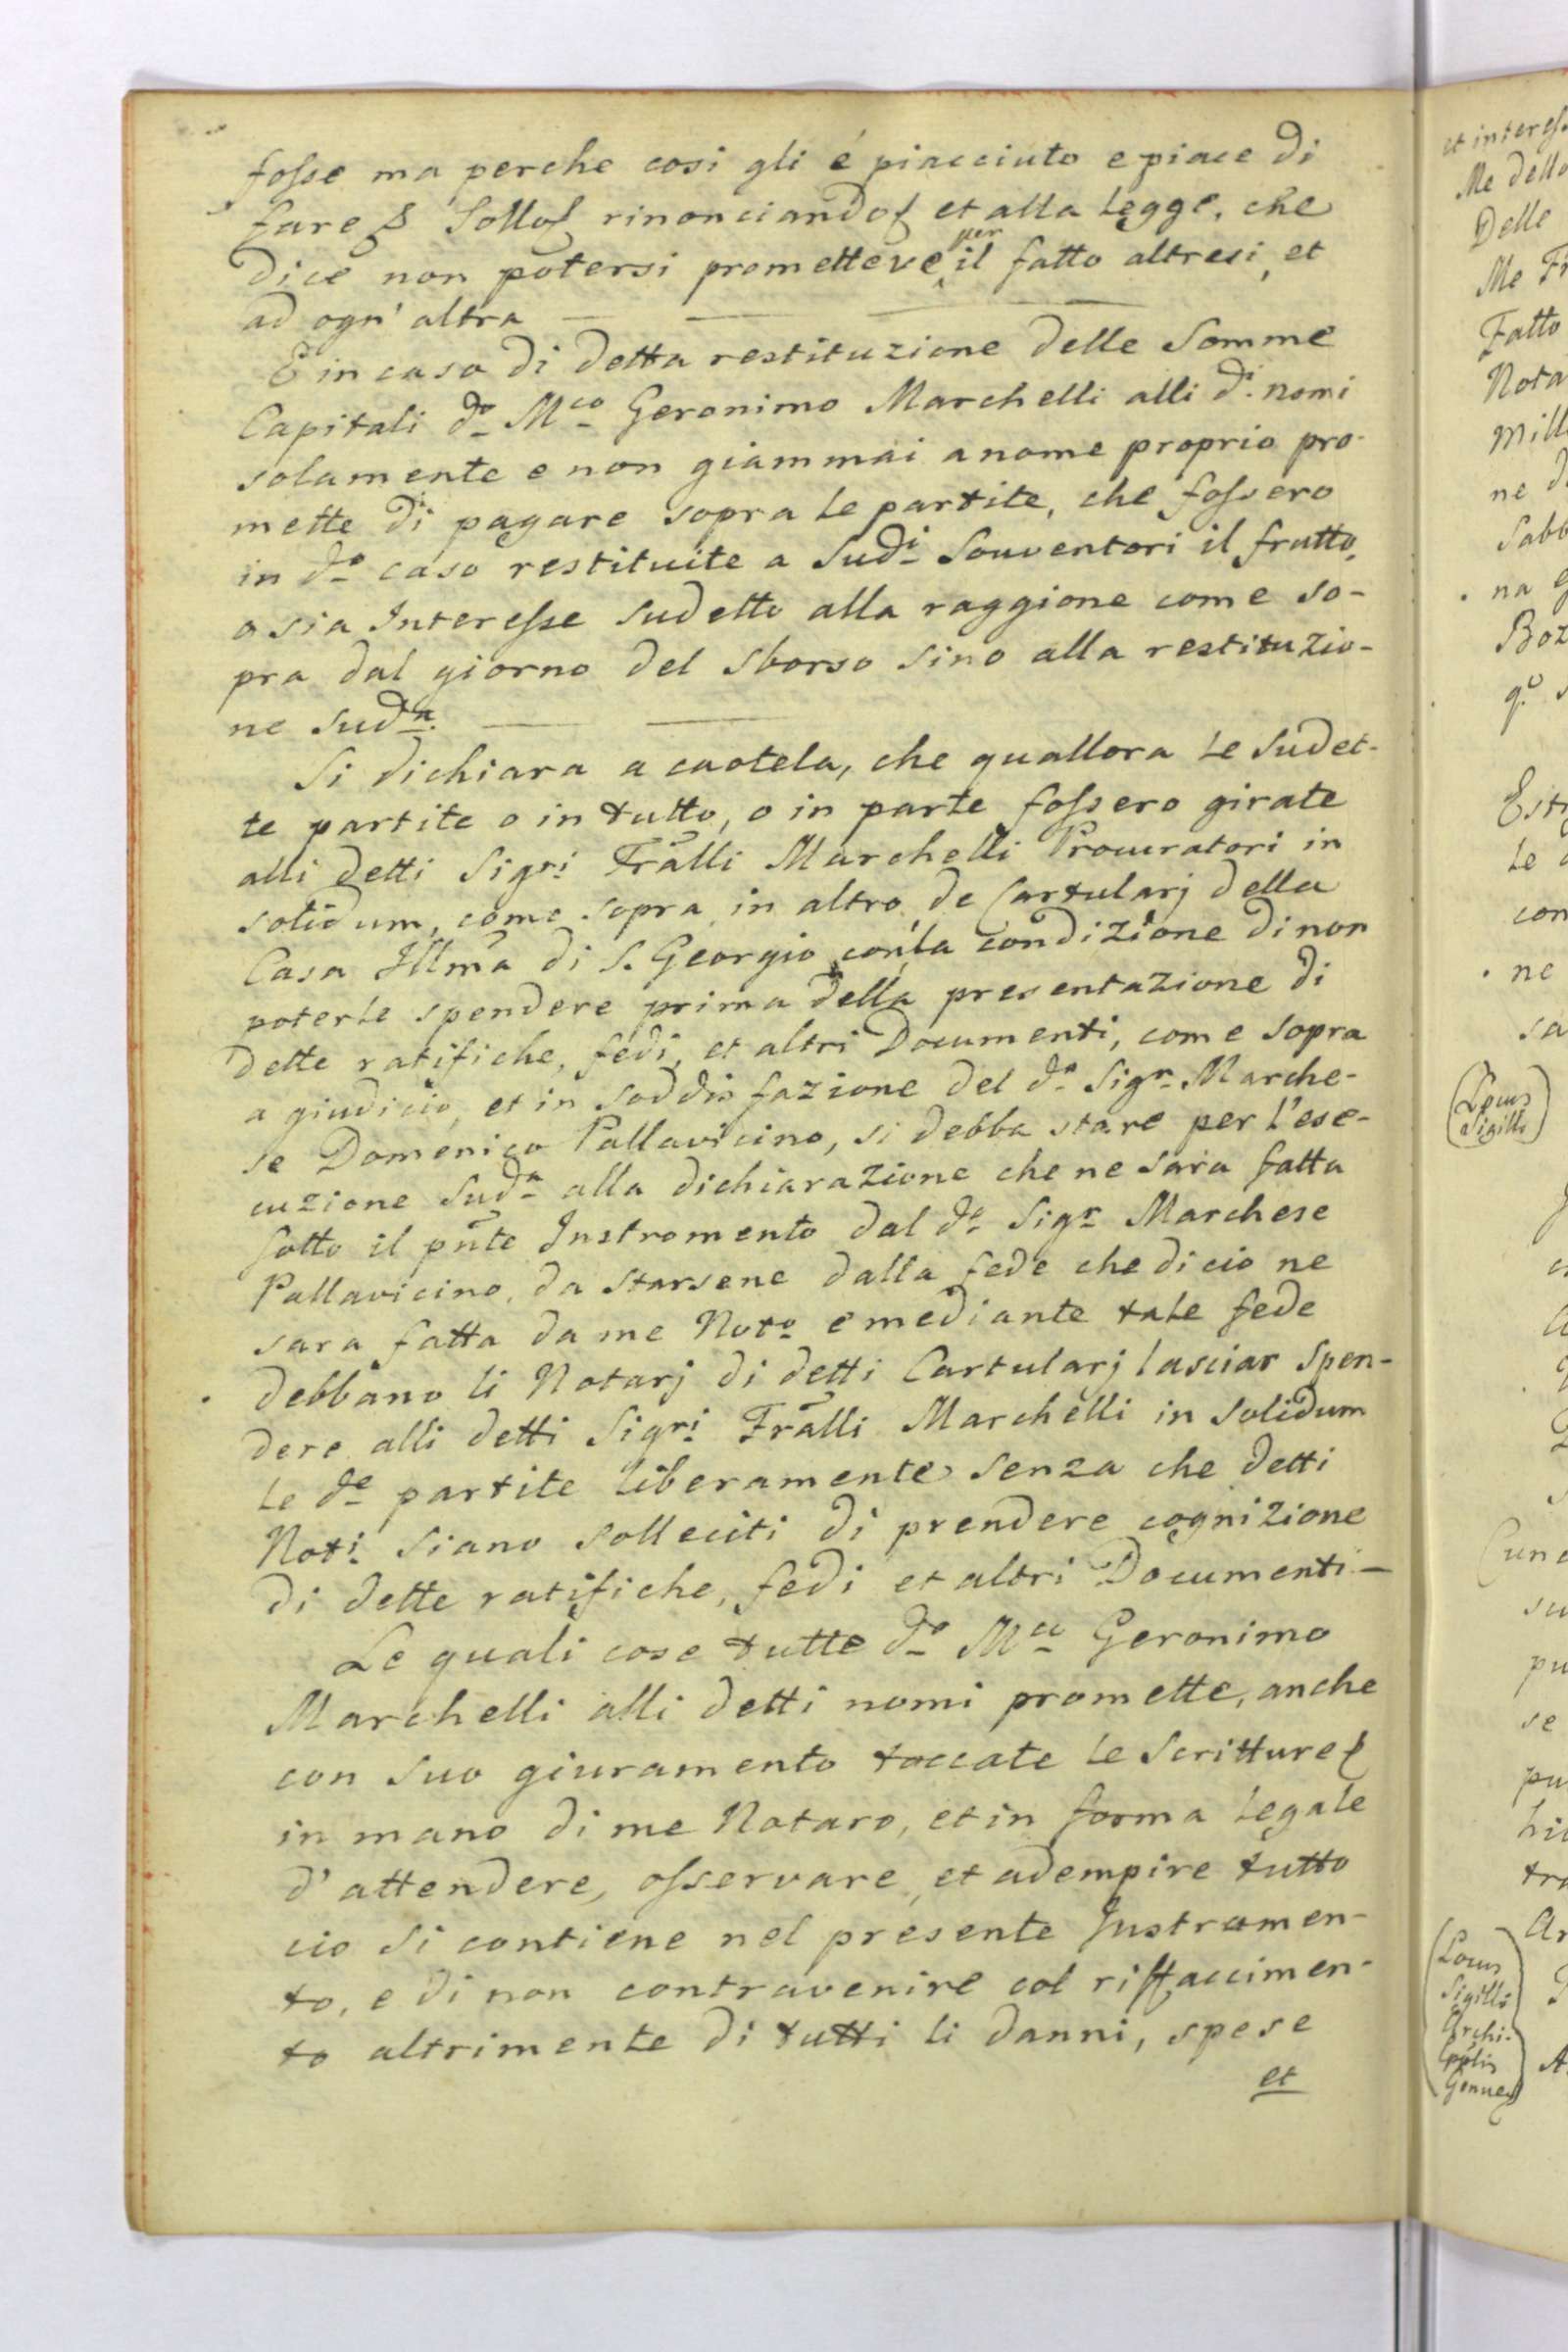 fosse ma perche cosi gli é piacciuto e piace di
fare rinonciando et alla Legge, che
dice non potersi promettere per il fatto altresi, et
ad ogn' altra
E in caso di detta restituzione delle Somme
Capitali do Mco Geronimo Marchelli alli di nomi
solamente e non giammai a nome proprio pro-
mette di pagare sopra le partite, che fossero
in do caso restituite a Sudi Souventori il frutto,
o sia Interesse sudetto alla raggione come so-
pra dal giorno del sborso sino alla restituzio-
ne suda.
Si dichiara a cautela, che quallora le sudet-
te partite o in tutto, o in parte fossero girate
alli detti Sigri Fralli Marchelli Procuratori in
solidum, come sopra in altro de Cartularj della
Casa Illma di S. Georgio con la condizione di non
poterle spendere prima della presentazione di
dette ratifiche, fedi, et altri Documenti, come sopra
a giudicio, et in soddisfazione del do Sigr Marche-
se Domenico Pallavicino, si debba stare per l'ese-
cuzione suda alla dichiarazione che ne sara fatta
sotto il pnte Instromento dal do Sigr Marchese
Pallavicino, da starsene dalla fede che di cio ne
sara fatta da me Noto e mediante tale fede
debbano li Notarj di detti Cartularj lasciar spen-
dere alli detti Sigri Fralli Marchelli in solidum
le de partite liberamente senza che detti
Noti siano solleciti di prendere cognizione
di dette ratifiche, fedi et altri Documenti –
Le quali cose tutte do Mco Geronimo
Marchelli alli detti nomi promette, anche
con suo giuramento toccate le Scritture
in mano di me Notaro, et in forma legale
d'attendere, osservare, et adempire tutto
cio si contiene nel presente Instromen-
to, e di non contravenire col riffaccimen-
to altrimente di tutti li danni, spese
et
et interess
Me dello
Delle
Me Fi
Fatto
Nota
Mill
ne d
Sabb
na
Boz
q.o
Est
le
con
ne
sa
(Locus
Sigilli)
Cun
su
pu
se
pu
hi
tra
(Locus
Sigilli
Archi-
Epplis
Genue)